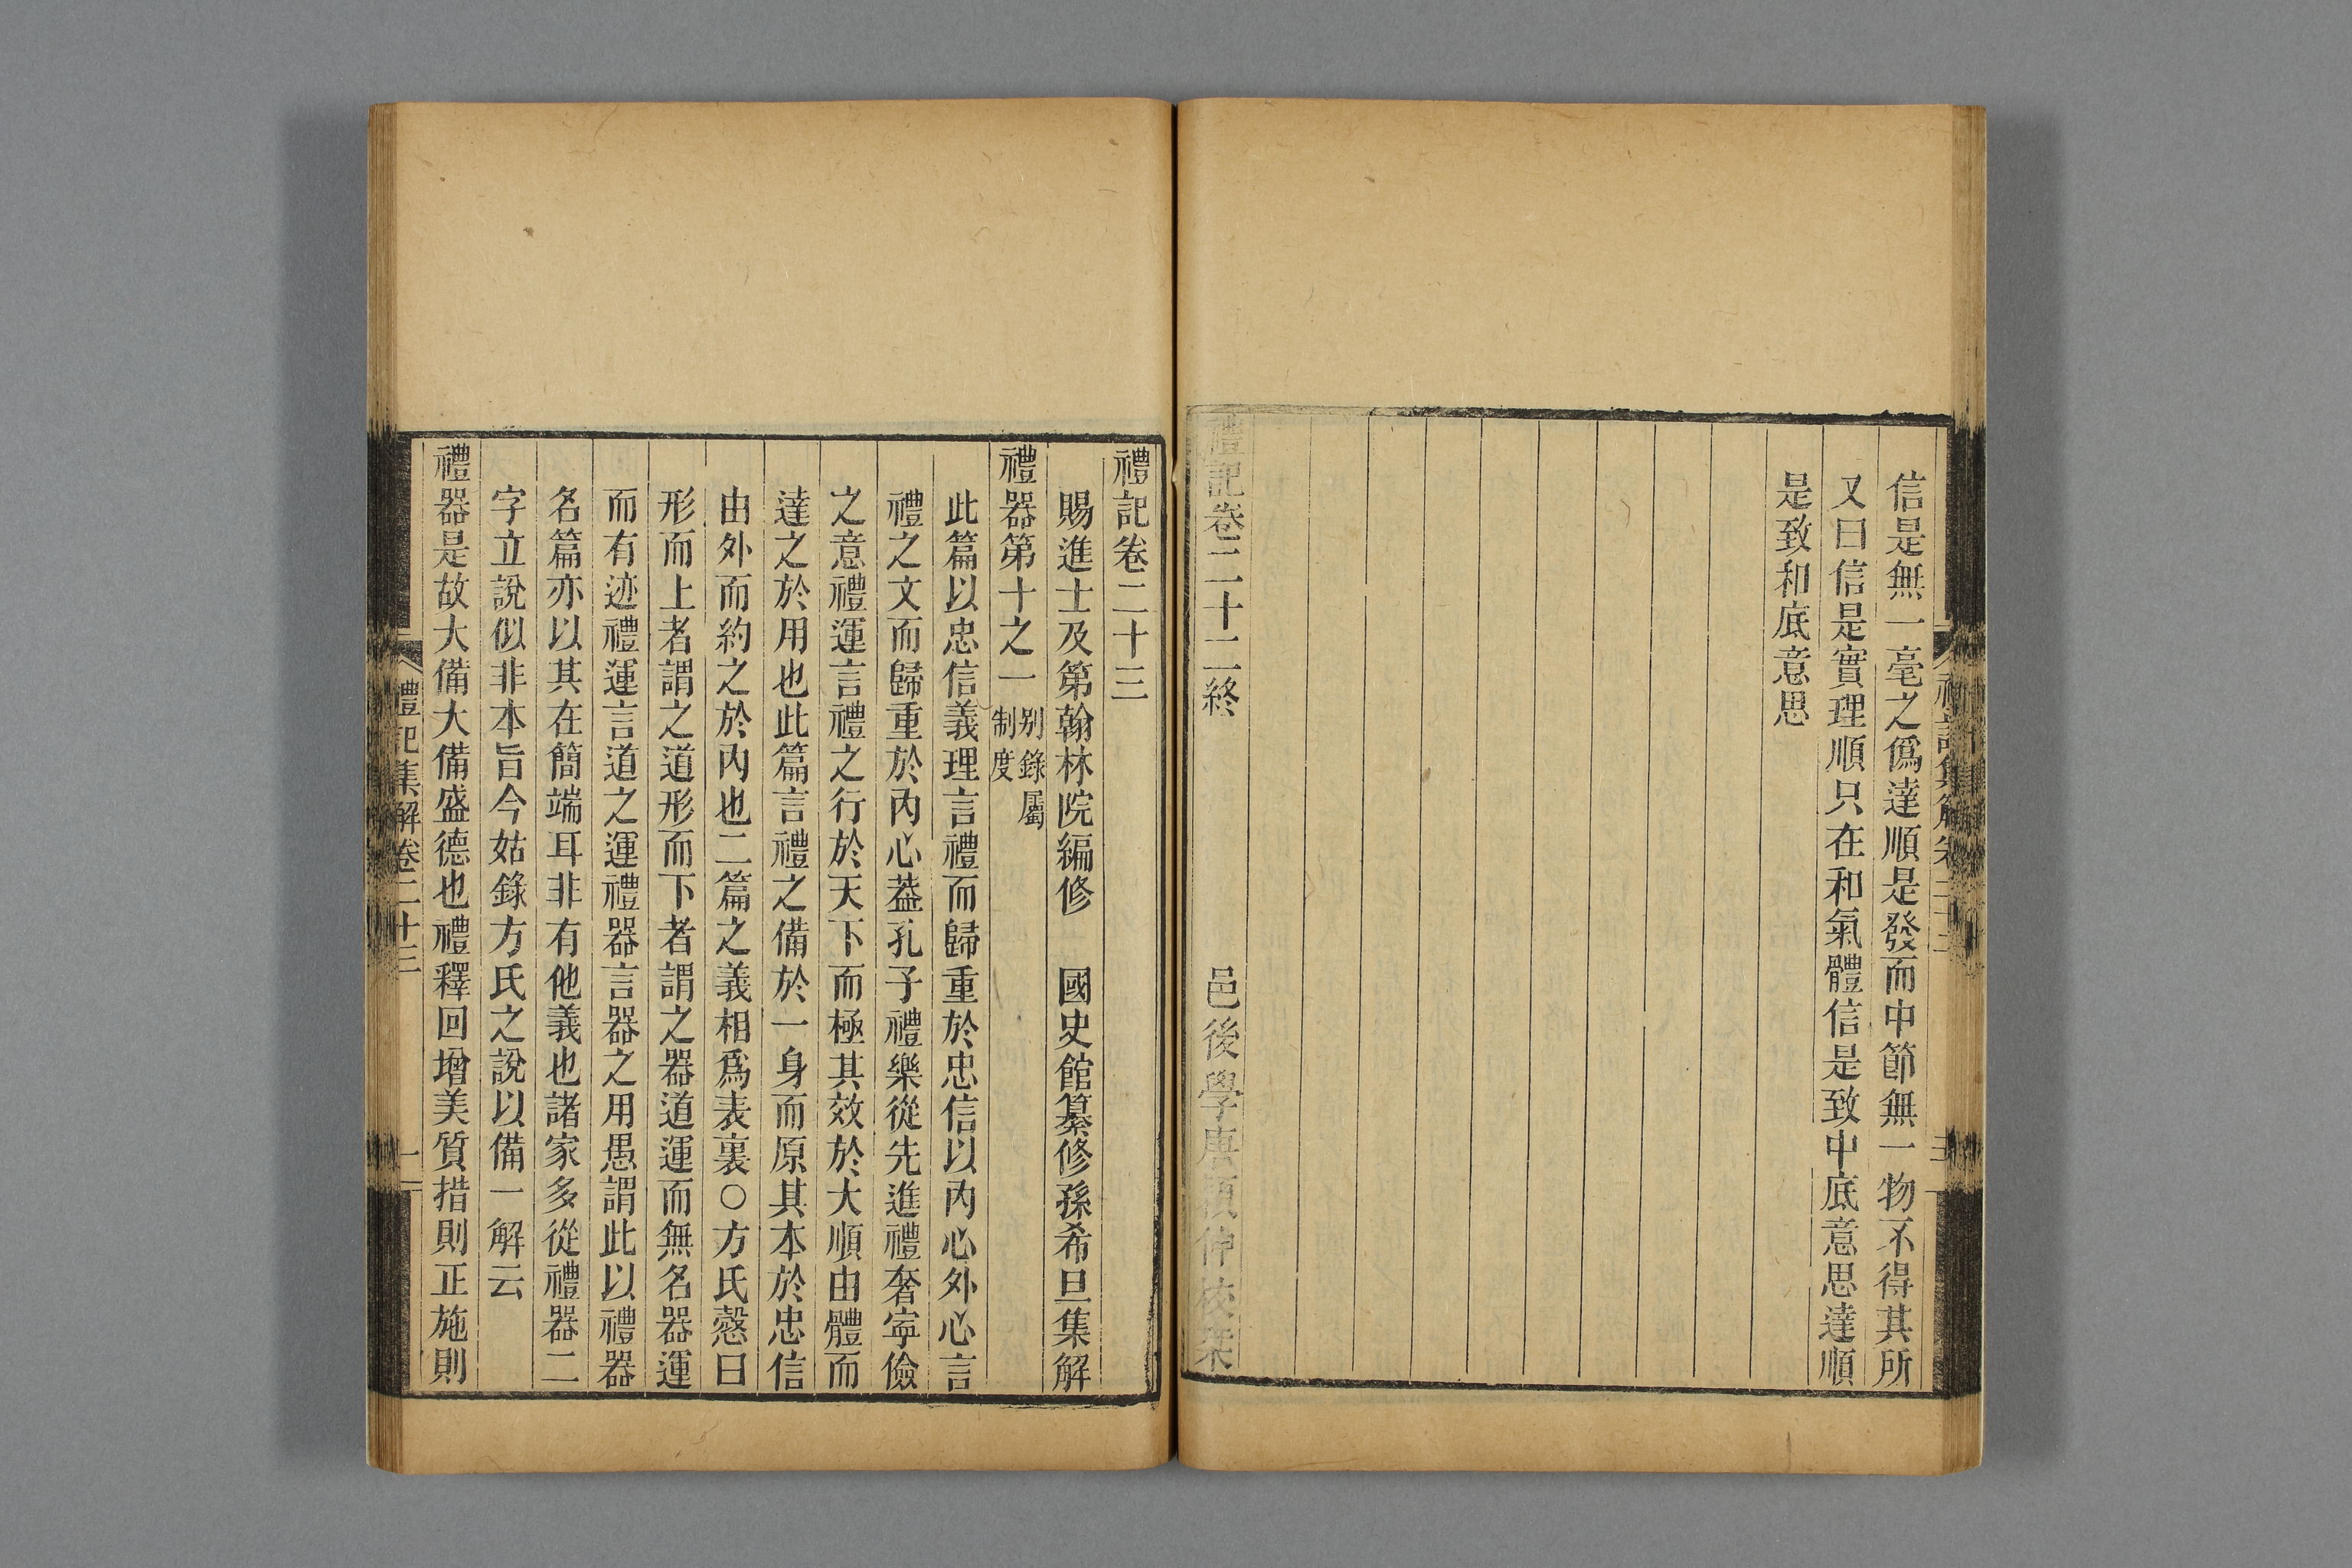 信是無一毫之僞達順是發而中節無一物不得其所
又曰信是實理順只在和氣體信是致中底意思達順
是致和底意思
禮記卷二十二終　邑後學唐　仲校栞
禮記卷二十三
賜進士及第翰林院編修　國史館纂修孫希旦集解
禮器第十之一 別錄屬
制度
此篇以忠信義理言禮而歸重於忠信以內心外心言
禮之文而歸重於內心葢孔子禮樂從先進禮奢寧儉
之意禮運言禮之行於天下而極其效於大順由體而
達之於用也此篇言禮之備於一身而原其本於忠信
由外而約之於內也二篇之義相爲表裏○方氏慤曰
形而上者謂之道形而下者謂之器道運而無名器運
而有迹禮運言道之運禮器言器之用愚謂此以禮器
名篇亦以其在簡端耳非有他義也諸家多從禮器二
字立說似非本旨今姑錄方氏之說以備一解云
禮器是故大備大備盛德也禮釋回增美質措則正施則
禮記集解卷二十三　一